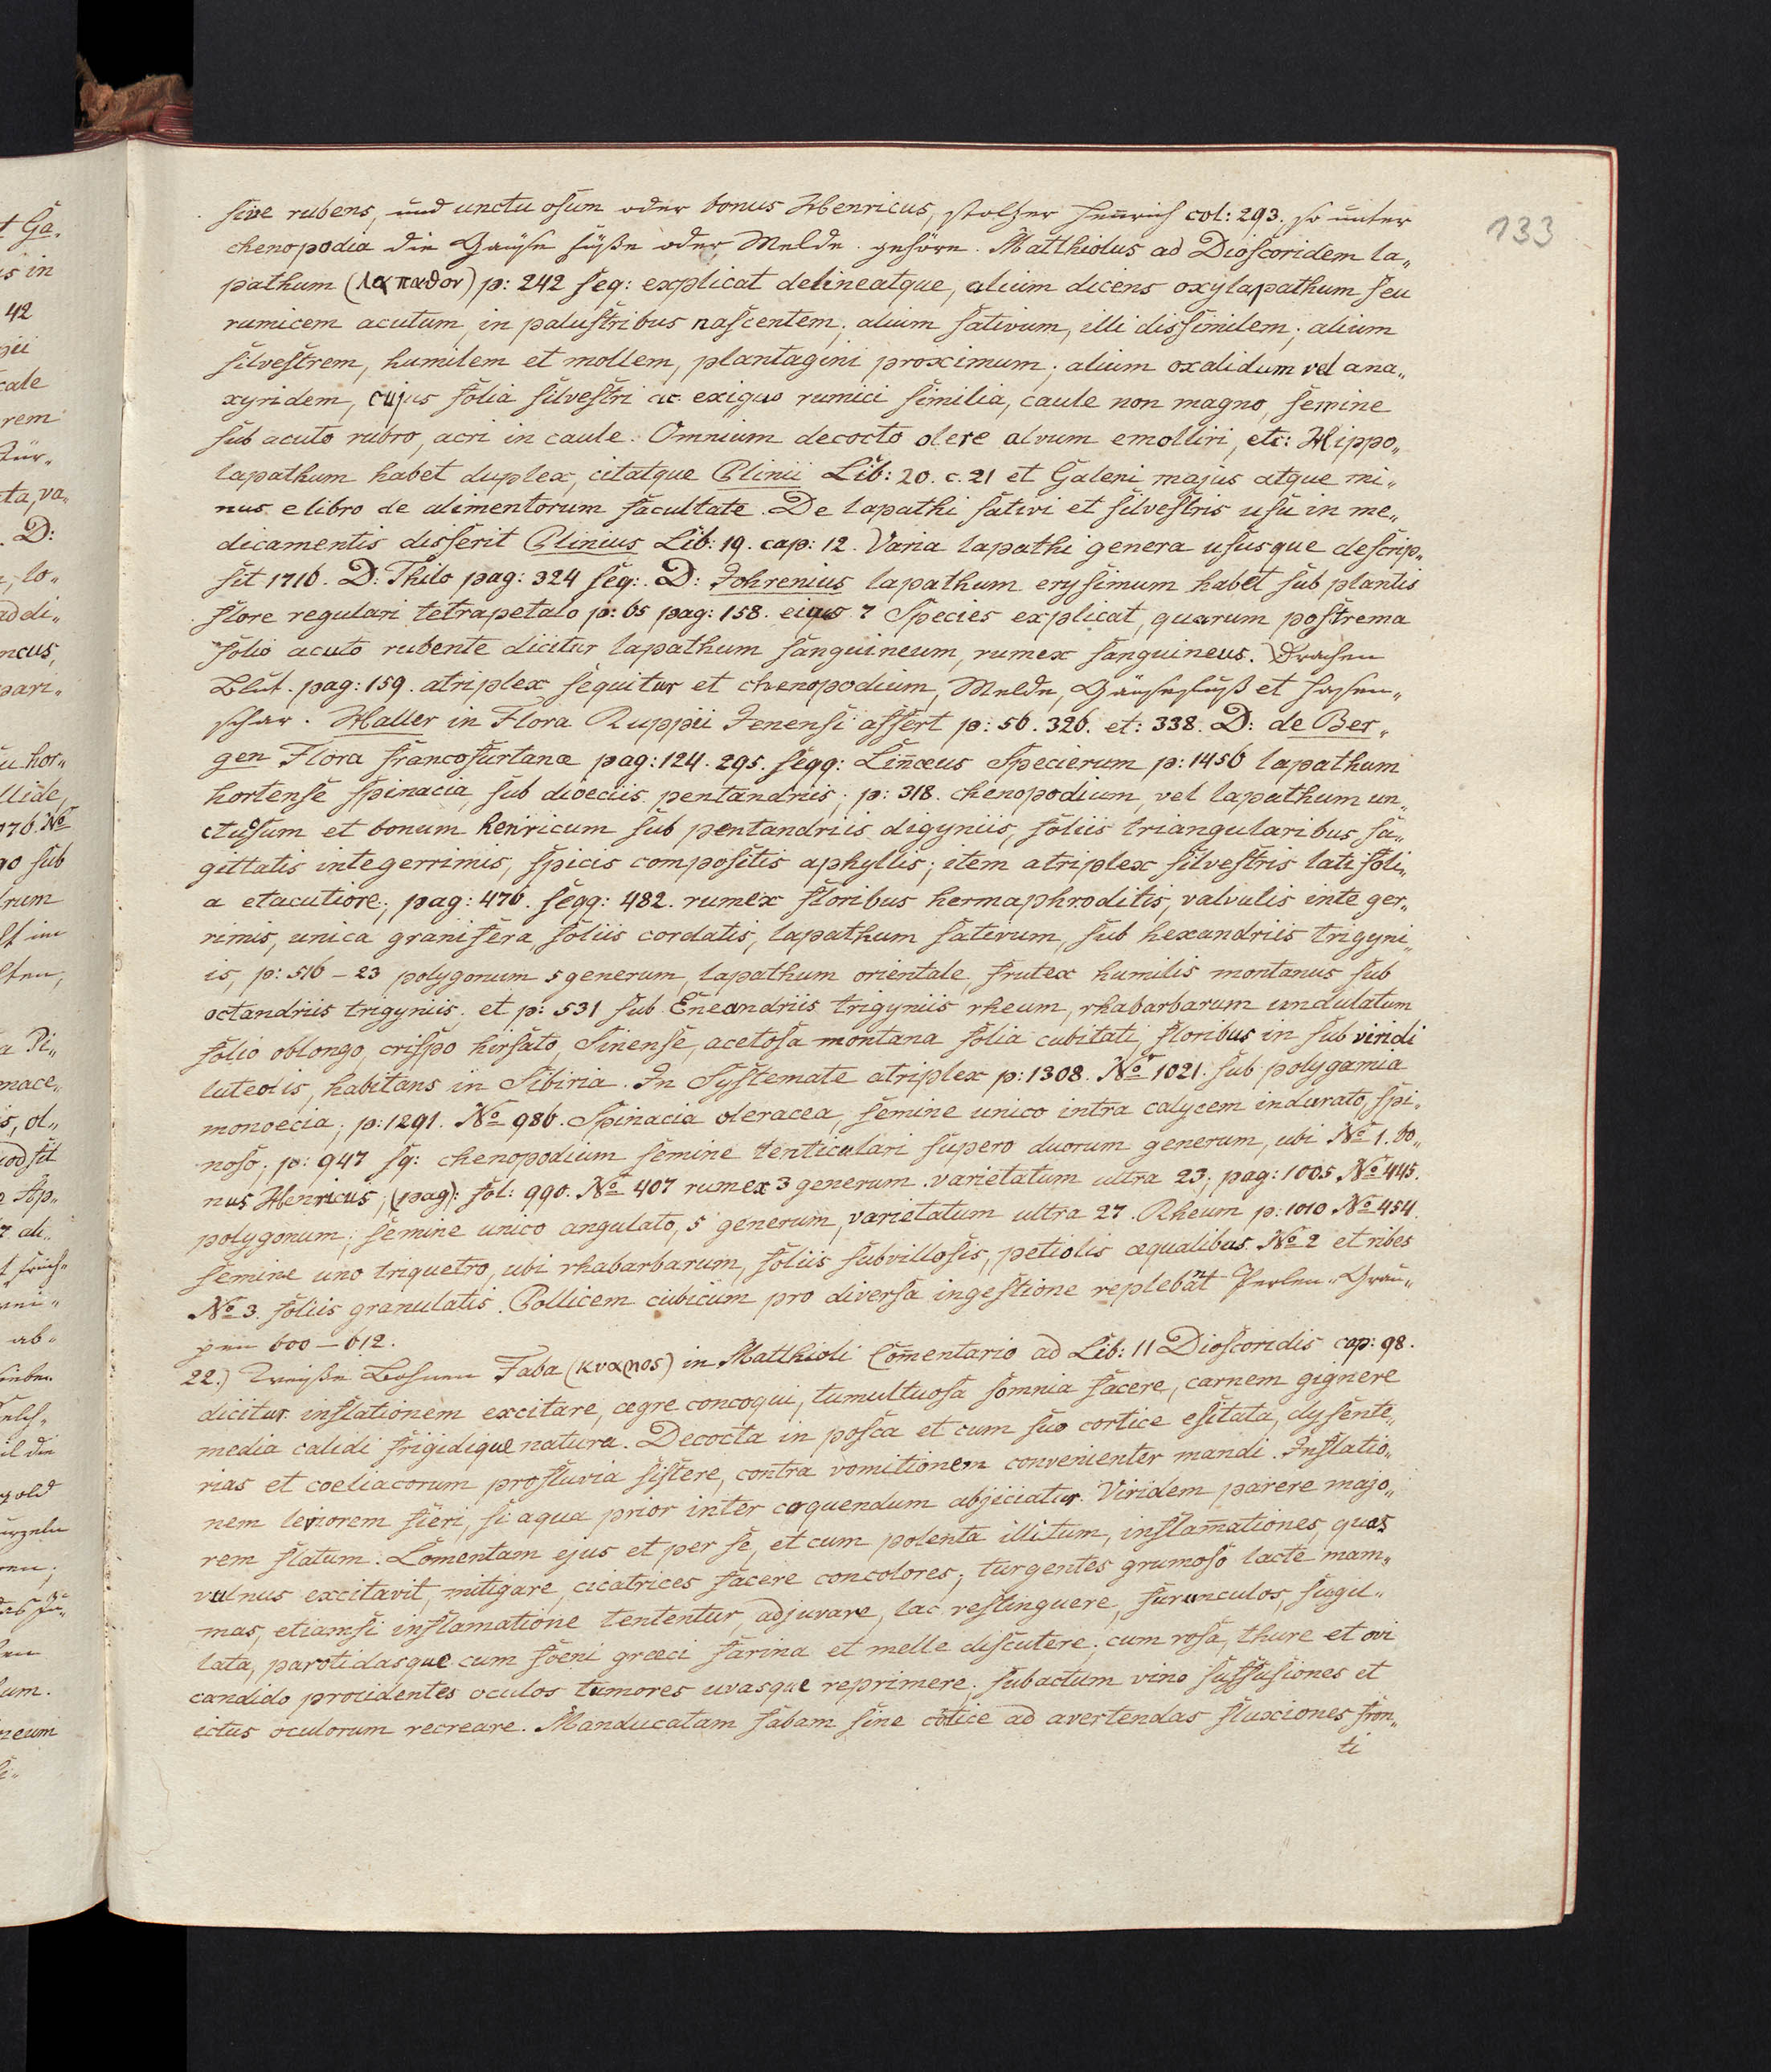 133
sive rubens, und unctuosum oder bonus Henricus, stolzer Heñrich col: 293. so unter
chenopodia die Gänse füße oder Melde gehöre. Matthiolus ad Dioscoridem la„
pathum (λαπαθον) p: 242 seq: explicat delineatque, alium dicens oxylapathum seu
rumicem acutum in palustribus nascentem; alium sativum, illi dissimilem; alium
silvestrem, humilem et mollem, plantagini proximum; alium oxalidum vel ana„
xyridem, cujus folia silvestri ac exiguo rumici similia, caule non magno, semine
sub acuto rubro, acri in caule. Omnium decocto olere alvum emolliri, etc: Hippo„
lapathum habet duplex, citatque Plinii Lib: 20. c. 21 et Galeni majus atque mi„
nus e libro de alimentorum facultate. De lapathi sativi et silvestris usu in me„
dicamentis disserit Plinius Lib: 19. cap: 12. Varia lapathi genera ususque descrip„
sit 1716. D: Thilo pag: 324 seq: D: Johrenius lapathum erysimum habet sub plantis
flore regulari tetrapetalo p: 65 pag: 158. eius 7 Species explicat, quarum postrema
folio acuto rubente dicitur lapathum sanguineum, rumex sanguineus. Drachen
Blut. pag: 159. atriplex sequitur et chenopodium, Melde, Gänsefuß et Hasen„
schar. Haller in Flora Ruppii Jenensi affert p: 56. 326. et: 338. D: de Ber„
gen Flora francofurtana pag: 124. 295. seqq: Liñæus Specierum p: 1456 lapathum
hortense spinacia sub dioeciis pentandriis; p: 318. chenopodium vel lapathum un„
ctuosum et bonum henricum sub pentandriis digyniis, foliis triangularibus sa„
gittatis integerrimis, spicis compositis aphyllis; item atriplex silvestris lati foli„
a etacutiore; pag: 476. seqq: 482. rumex floribus hermaphroditis, valvulis inte ger„
rimis, unica granifera foliis cordatis, lapathum sativum, sub hexandriis trigyni„
is, p: 516 – 23 polygonum 5 generum, lapathum orientale frutex humilis montanus sub
octandriis trigyniis. et p: 531 sub Eneandriis trigyniis rheum, rhabarbarum undulatum
folio oblongo, crispo hirsato, Sinense, acetosa montana folia cubitati, floribus in sub viridi
luteolis, habitans in Sibiria. In Systemate atriplex p: 1308. No 1021. sub polygamia
monoecia; p: 1291. No 986. Spinacia oleracea, semine unico intra calycem indurato, spi„
noso; p: 947 sq: chenopodium semine lenticulari supero duorum generum, ubi No 1. bo„
nus Henricus; (pag): fol: 990. No 407 rumex 3 generum varietatum ultra 23; pag: 1005 No 445.
polygonum; semine unico angulato, 5 generum, varietatum ultra 27. Rheum p: 1010 No 454.
semine uno triquetro, ubi rhabarbarum, foliis subvillosis, petiolis æqualibus No 2 et ribes
No 3. foliis granulatis. Pollicem cubicum pro diversa ingestione replebant Perlen„Grau„
pen 600 – 612.
22.) Weiße Bohnen Faba (κυαμος) in Matthioli Com̃entario ad Lib: 11 Dioscoridis cap: 98.
dicitur inflationem excitare, ægre concoqui, tumultuosa somnia facere, carnem gignere
media calidi frigidique natura. Decocta in posca et cum suo cortice esitata, dysente„
rias et coeliacorum profluvia sistere, contra vomitionem convenienter mandi. Inflatio„
nem leviorem fieri, si aqua prior inter coquendum abjiciatur. Viridem parere majo„
rem flatum. Lomentam ejus et per se, et cum polenta illitum, inflam̃ationes, quas
vulnus excitavit, mitigare, cicatrices facere concolores; turgentes grumoso lacte mam„
mas, etiamsi inflamatione tententur, adjuvare, lac restinguere, furunculos, sugil„
lata, parotidasque cum foeni græci farina et melle discutere; cum rosa, thure et ovi
candido procidentes oculos tumores uvasque reprimere; subactum vino suffusiones et
ictus oculorum recreare. Manducatam fabam sine cotice ad avertendas fluxiones fron„
ti